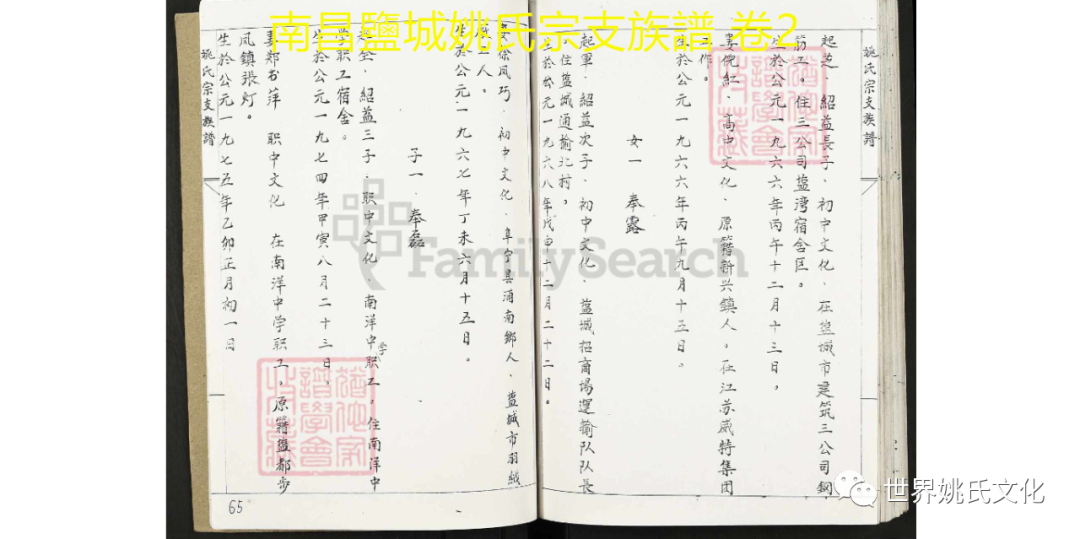 南昌鹽城姚氏宗支族譜 卷2
姚氏宗支族譜
起芝、紹益長子、初中文化、在盐城市建筑三公司鋼
筋工。住三公司盐湾宿舍区。
生於公元一九六六年丙午十二月十三日,
妻倪紅、高中文化、原籍新兴鎮人。在江苏威特集团
工作。
生於公元一九六六年丙午九月十五日。
女一 奉露
起軍、紹益次子、初中文化、盐城招商場運輸队队長
住盐城通榆北村,
生於公元一九六八年戊申十二月二十二日。
妻徐凤巧、初中文化、阜宁县涌南鄉人、盐城市羽絨
人。
生於公元一九六七年丁未六月十五日。
子一、奉磊
紹益三子、职中文化、南洋中学职工。住南洋中
学职工宿舍。
生於公元一九七四年甲寅八月二十三日,
妻郑书萍 职中文化 在南洋中学职工。原籍盐都步
凤鎮張灯。
生於公元一九七五年乙卯正月初一日
姚氏宗支族譜
65
FamilySearch
世界姚氏文化